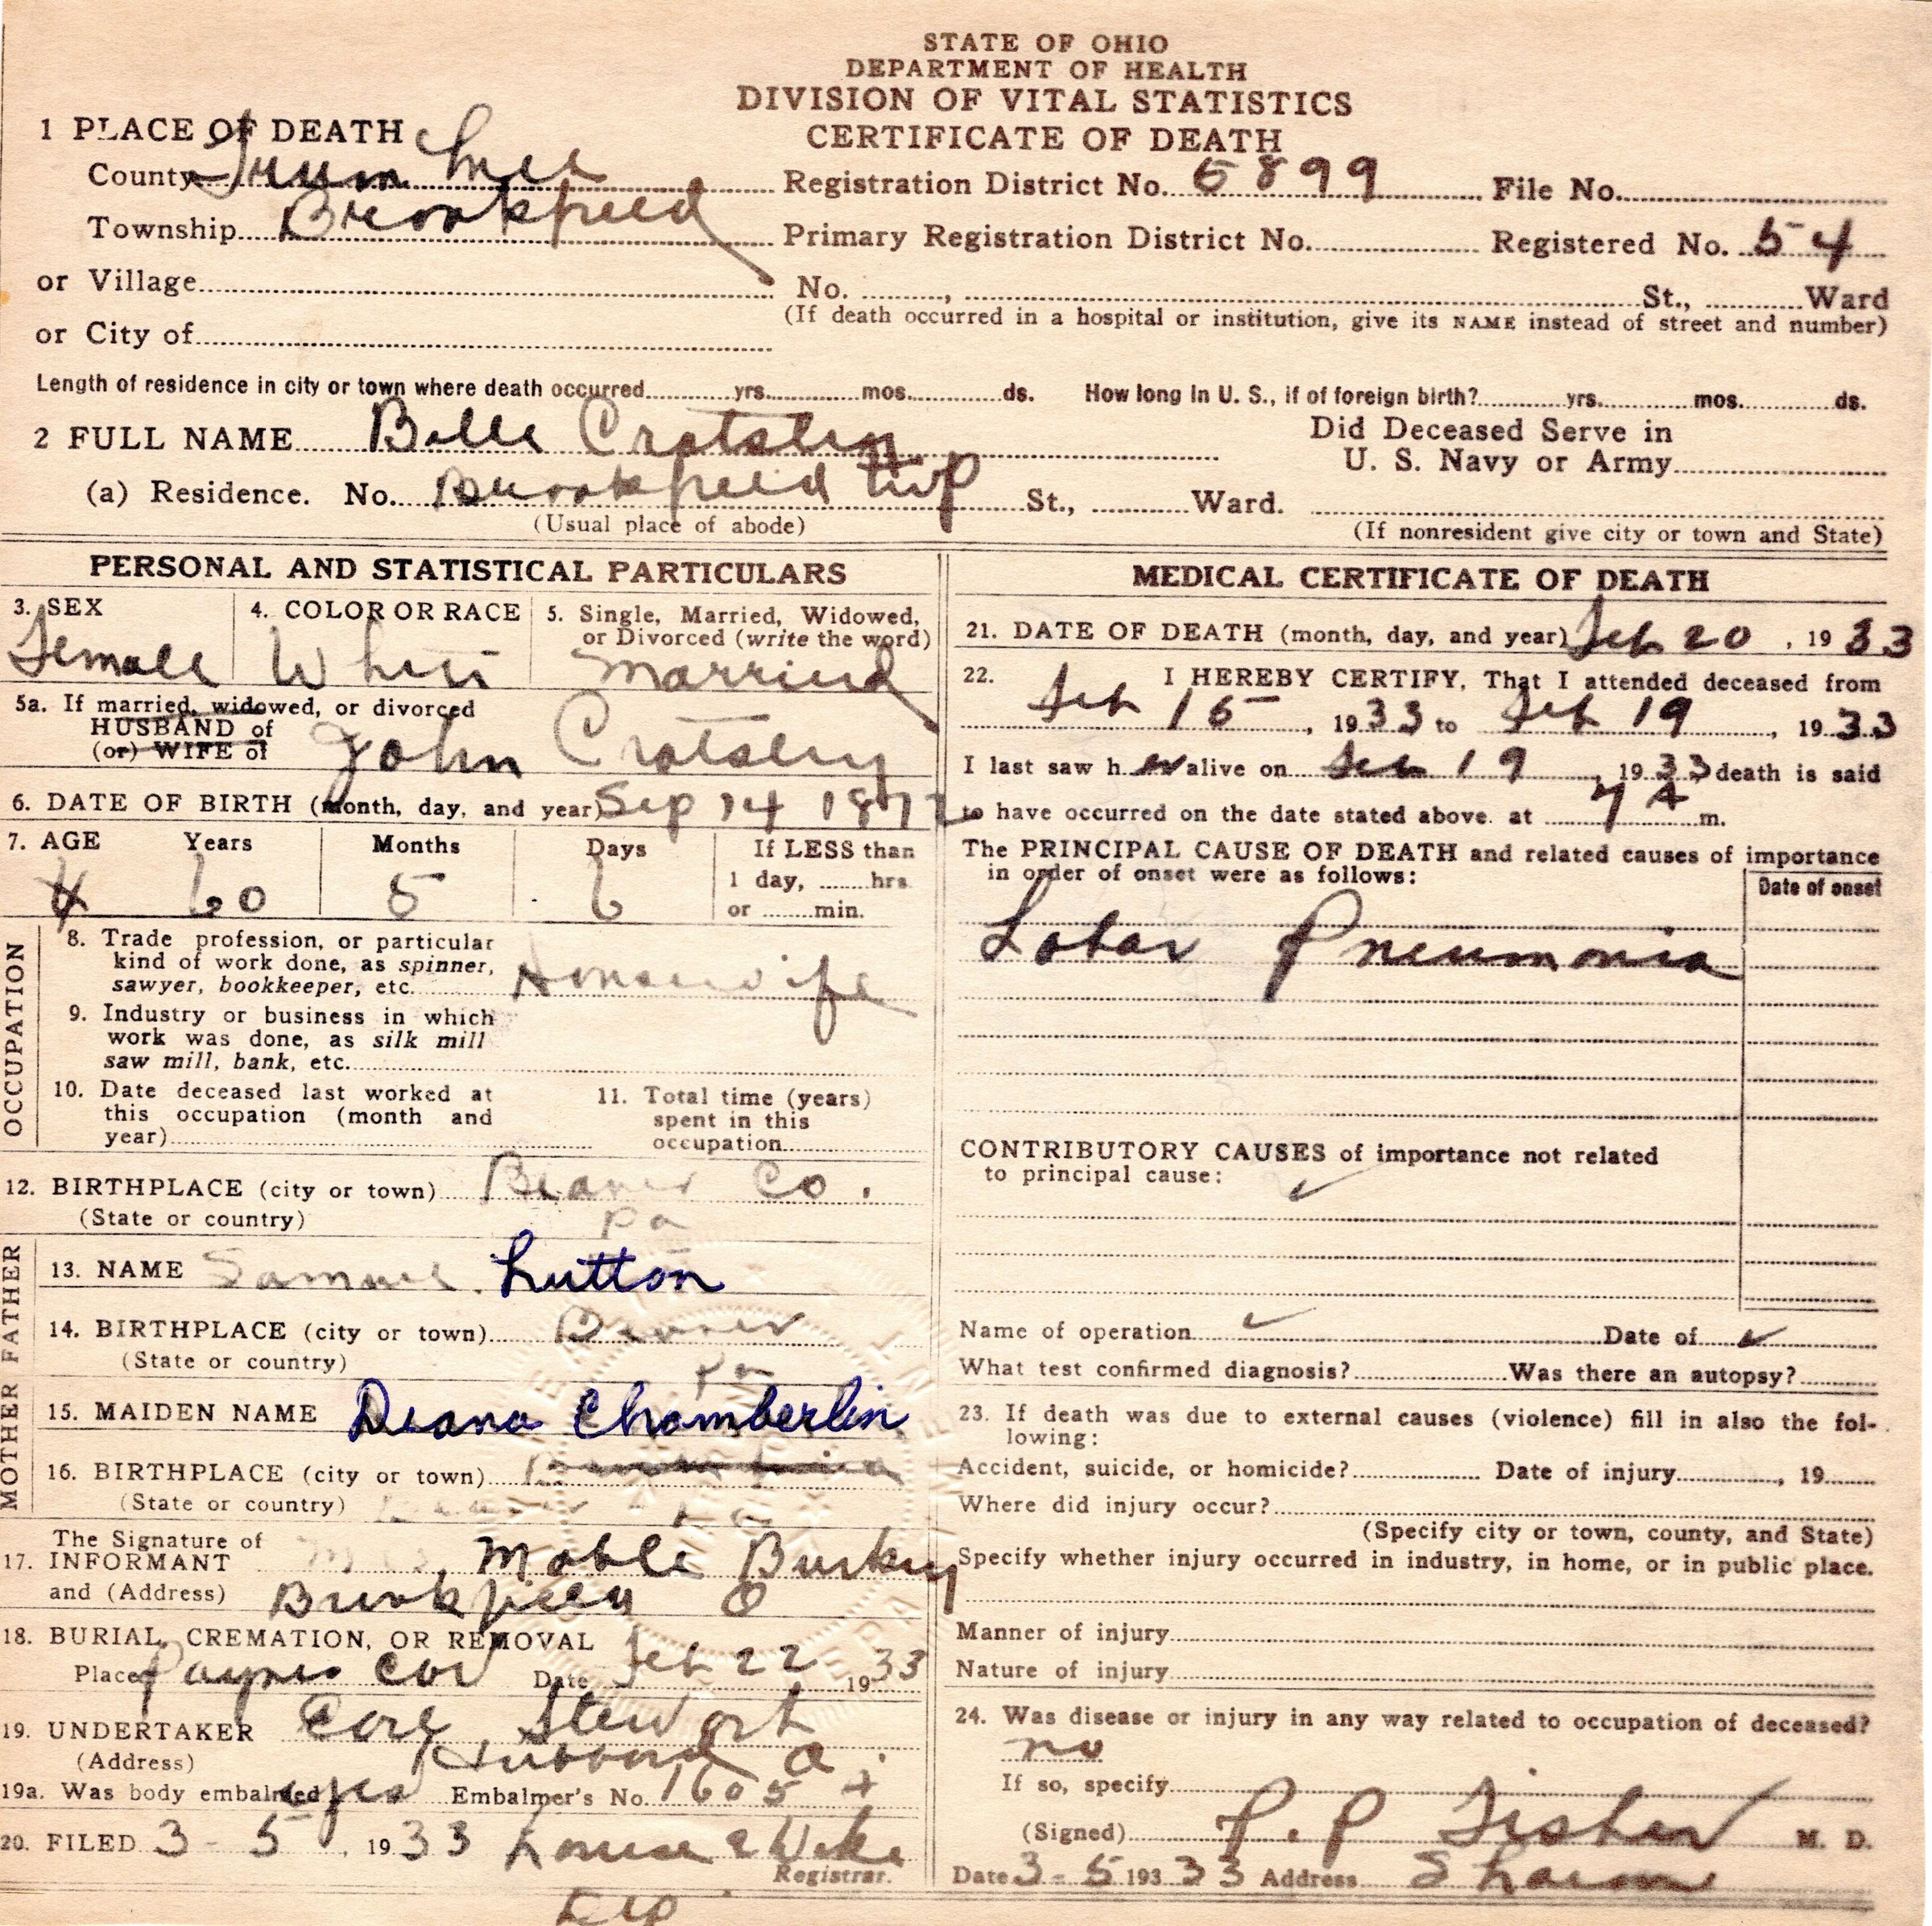 STATE OF OHIO
DEPARTMENT OF HEALTH
DIVISION OF VITAL STATISTICS
CERTIFICATE OF DEATH
1 PLACE OF DEATH
County Trumbull Registration District No. 5899 File No.
Township Brookfield Primary Registration District No. Registered No. 54
or Village No. , St., Ward
(If death occurred in a hospital or institution, give its NAME instead of street and number)
or City of
Length of residence in city or town where death occurred yrs. mos. ds. How long in U. S., if of foreign birth? yrs. mos. ds.
2 FULL NAME Belle Crotsley Did Deceased Serve in
U. S. Navy or Army
(a) Residence. No. Brookfield twp St., Ward.
(Usual place of abode) (If nonresident give city or town and State)
PERSONAL AND STATISTICAL PARTICULARS
3. SEX 4. COLOR OR RACE 5. Single, Married, Widowed,
or Divorced (write the word)
Female White Married
5a. If married, widowed, or divorced
HUSBAND of
(or) WIFE of John Crotsley
6. DATE OF BIRTH (month, day, and year) Sep 14 1872
7. AGE Years Months Days If LESS than
1 day, hrs.
60 5 6
or min.
OCCUPATION
8. Trade profession, or particular
kind of work done, as spinner,
sawyer, bookkeeper, etc. Housewife
9. Industry or business in which
work was done, as silk mill
saw mill, bank, etc.
10. Date deceased last worked at
this occupation (month and
year)
11. Total time (years)
spent in this
occupation
12. BIRTHPLACE (city or town) Beaver Co.
(State or country) Pa
FATHER
13. NAME Samuel Lutton
14. BIRTHPLACE (city or town) Beaver
(State or country) Pa
MOTHER
15. MAIDEN NAME Deana Chamberlin
16. BIRTHPLACE (city or town)
(State or country)
The Signature of
17. INFORMANT Mrs. Mable Burkey
and (Address) Brookfield O
18. BURIAL, CREMATION, OR REMOVAL
Place Paynes Cor Date Feb 22 1933
19. UNDERTAKER Stewart
(Address) Hubbard O.
19a. Was body embalmed yes Embalmer's No. 1605
20. FILED 3-5, 1933 Louise
Registrar.
MEDICAL CERTIFICATE OF DEATH
21. DATE OF DEATH (month, day, and year) Feb 20, 1933
22. I HEREBY CERTIFY, That I attended deceased from
Feb 15, 1933 to Feb 19, 1933
I last saw her alive on Feb 19, 1933 death is said
to have occurred on the date stated above. at 7 A m.
The PRINCIPAL CAUSE OF DEATH and related causes of importance
in order of onset were as follows:
Date of onset
Lobar Pneumonia
CONTRIBUTORY CAUSES of importance not related
to principal cause:
Name of operation Date of
What test confirmed diagnosis? Was there an autopsy?
23. If death was due to external causes (violence) fill in also the fol-
lowing:
Accident, suicide, or homicide? Date of injury , 19
Where did injury occur?
(Specify city or town, county, and State)
Specify whether injury occurred in industry, in home, or in public place.
Manner of injury
Nature of injury
24. Was disease or injury in any way related to occupation of deceased?
no
If so, specify
(Signed) P. P Fisher M. D.
Date 3-5 193 33 Address Sharon